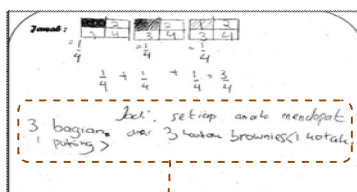 Jawab :
2 2 1 2
3 4 3 4 3 4
= 1/4 = 1/4 = 1/4
1/4 + 1/4 + 1/4 = 3/4
Jadi, setiap anak mendapat
3 bagian dari 3 kotak brownies < 1 kotak
1 potong >